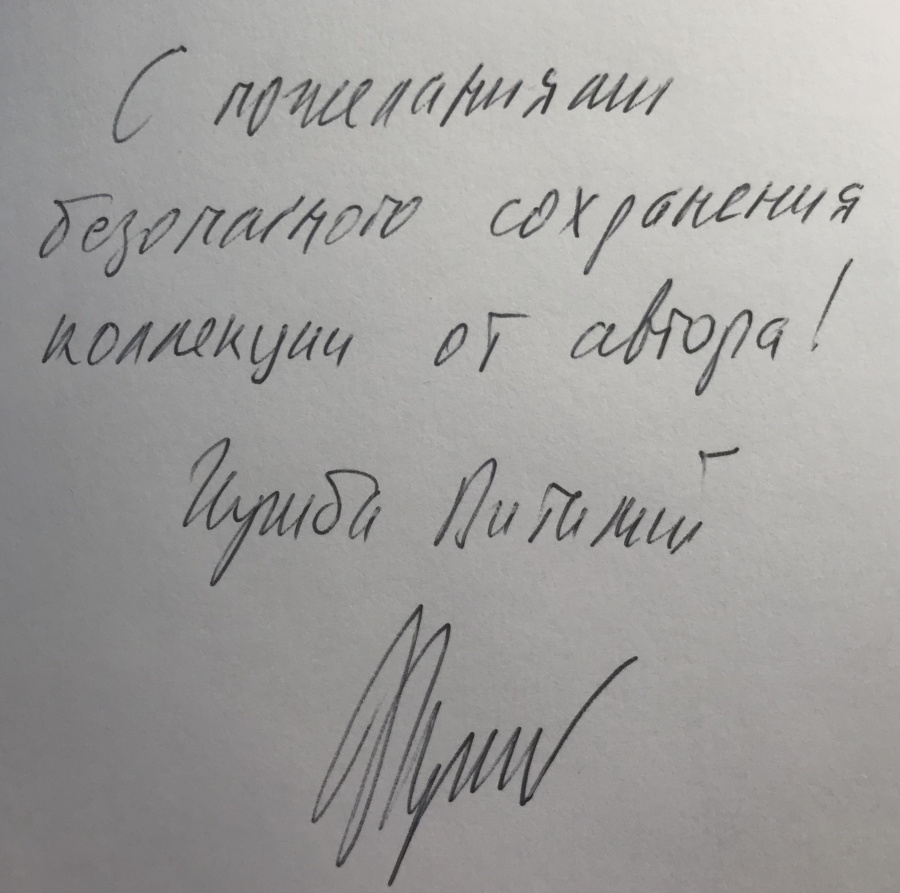 С пожеланиями
безопасного сохранения
коллекции от автора!
Виталий